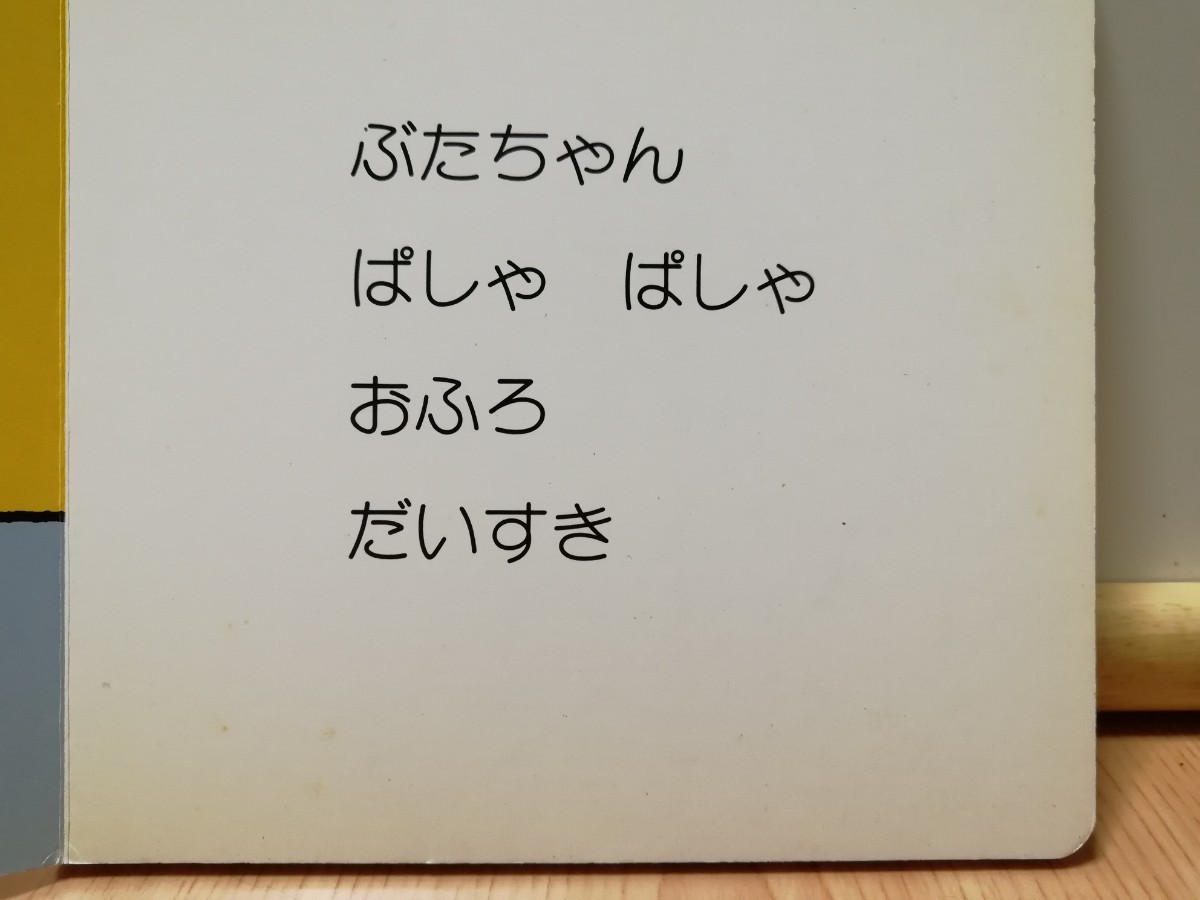 ぶたちゃん
ぱしゃ　ぱしゃ
おふろ
だいすき